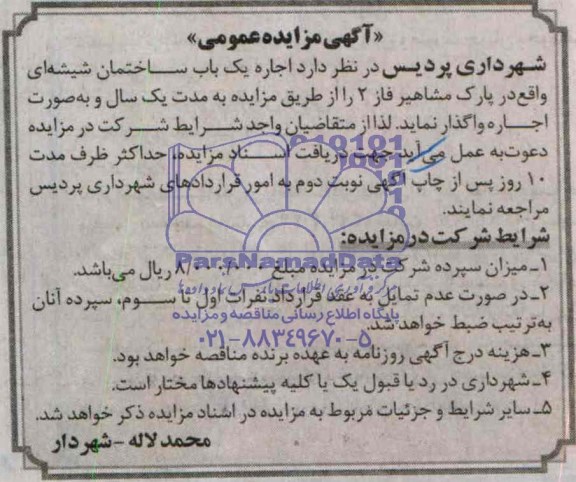 «آگهی مزایده عمومی»
شهرداری پردیس در نظر دارد اجاره یک باب ساختمان شیشه‌ای
واقع در پارک مشاهیر فاز ۲ را از طریق مزایده به مدت یک سال و به‌صورت
اجاره واگذار نماید. لذا از متقاضیان واجد شرایط شرکت در مزایده
دعوت به عمل می‌آید جهت دریافت اسناد مزایده، حداکثر ظرف مدت
۱۰ روز پس از چاپ آگهی نوبت دوم به امور قراردادهای شهرداری پردیس
مراجعه نمایند.
شرایط شرکت در مزایده:
۱ـ میزان سپرده شرکت در مزایده مبلغ ۸/۰۰۰/۰۰۰ ریال می‌باشد.
۲ـ در صورت عدم تمایل به عقد قرارداد نفرات اول تا سوم، سپرده آنان
به‌ترتیب ضبط خواهد شد.
۳ـ هزینه درج آگهی روزنامه به عهده برنده مناقصه خواهد بود.
۴ـ شهرداری در رد یا قبول یک یا کلیه پیشنهادها مختار است.
۵ـ سایر شرایط و جزئیات مربوط به مزایده در اسناد مزایده ذکر خواهد شد.
محمد لاله - شهردار
ParsNamadData
پایگاه اطلاع رسانی مناقصه و مزایده
۰۲۱-۸۸۳۴۹۶۷۰-۵